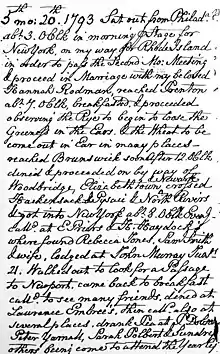 5th mo: 20th 1793 Sat out from Philada
abt 3.OClk in morning pr Stage for
New York, on my way for Rhode Island
in order to pass the Second Mo: Meeting
& proceed in Marriage with my beloved
Hannah Rodman, reached Trenton
abt 7.OClk, breakfasted & proceeded
observing the Rye to begin to loose the
Greenness in the Ears. & the Wheat to be
come out in Ear in many places –
reached Brunswick soon after 12.OClk
dined & proceeded on by way of
Woodbridge, Elizabeth town, & Newark crossed
Hackensack & Rivers
& got into New York abt 8.OClk Eveng
calld at & Haydock's
where found Rebecca Jones, Saml Smith
& wife, lodged at John Murray Junrs
21. Walked out to look for a Passage
to Newport, came back to breakfast
calld to see many friends, dined at
Lawrence Embree's, then calld also at
several places, drank Tea at
Peter Yarnall, Sarah
others being come to attend the Yearly